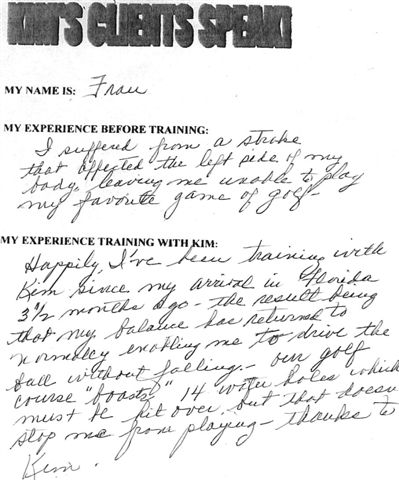 KIM'S CLIENTS SPEAK!
MY NAME IS: Fran
MY EXPERIENCE BEFORE TRAINING:
I suffered from a stroke
that affected the left side of my
body, leaving me unable to play
my favorite game of golf-
MY EXPERIENCE TRAINING WITH KIM:
Happily, I've been training with
Kim since my arrival in Florida
3 1/2 months ago - the result being
that my balance has returned to
normalcy enabling me to drive the
ball without falling. - our golf
course "boasts" 14 water holes which
must be hit over, but that doesn
stop me from playing - thanks to
Kim.